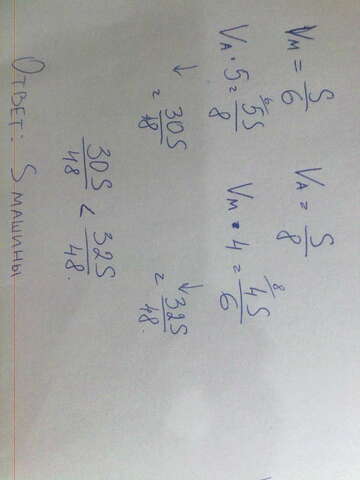 Vм = S/6    Vᴀ = S/8
Vᴀ · 5 = 5S/8    Vм · 4 = 4S/6
↓ = 30S/48    ↓ = 32S/48.
30S/48 < 32S/48.
Ответ: S машины